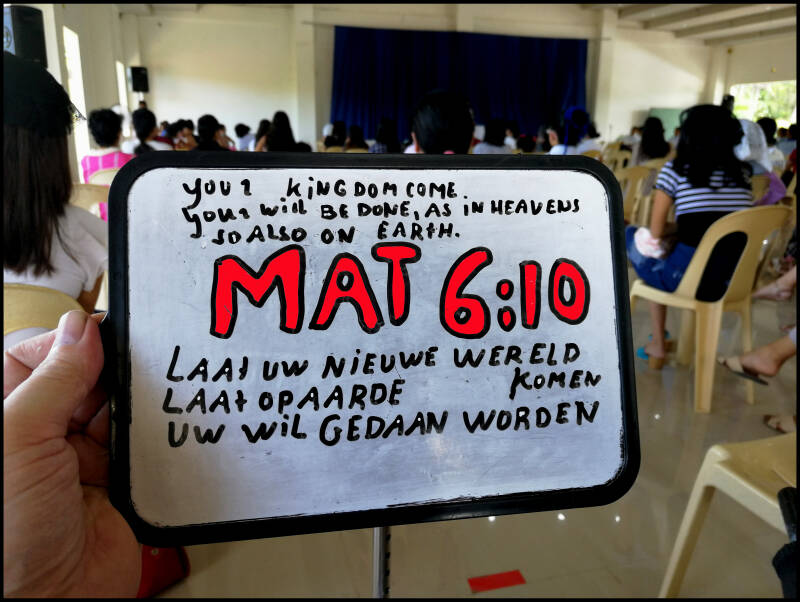 your KINGDOM COME.
your will BE DONE, AS IN HEAVENS
SO ALSO ON EARTH.
MAT 6:10
LAAt UW NIEUWE WERELD
KOMEN
LAAt OP AARDE
UW WIL GEDAAN WORDEN